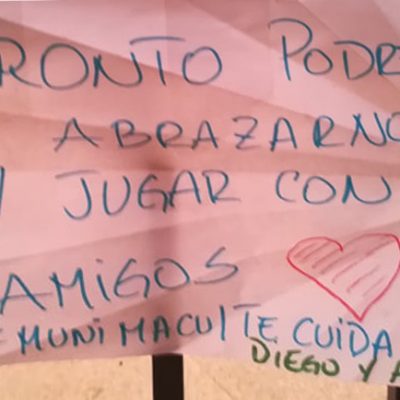 RONTO PODR
ABRAZARNO
Y JUGAR CON
AMIGOS
MUNIMACUL TE CUIDA
DIEGO Y A